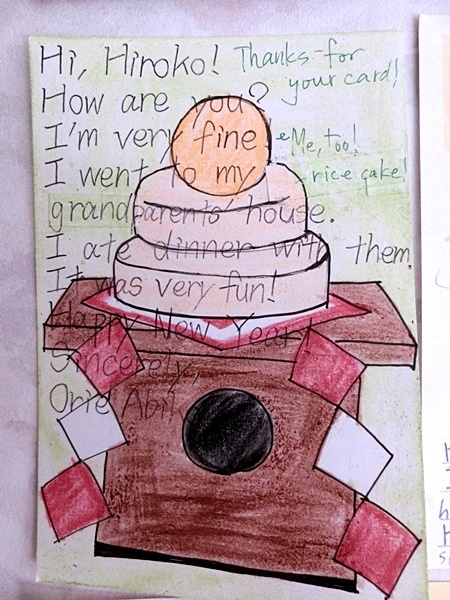 Hi, Hiroko! Thanks for
your card!
How are you?
I'm very fine! Me, too!
I went to my rice cake!
grandparents' house.
I ate dinner with them.
It was very fun!
Happy New Year!
Sincerely,
Orie